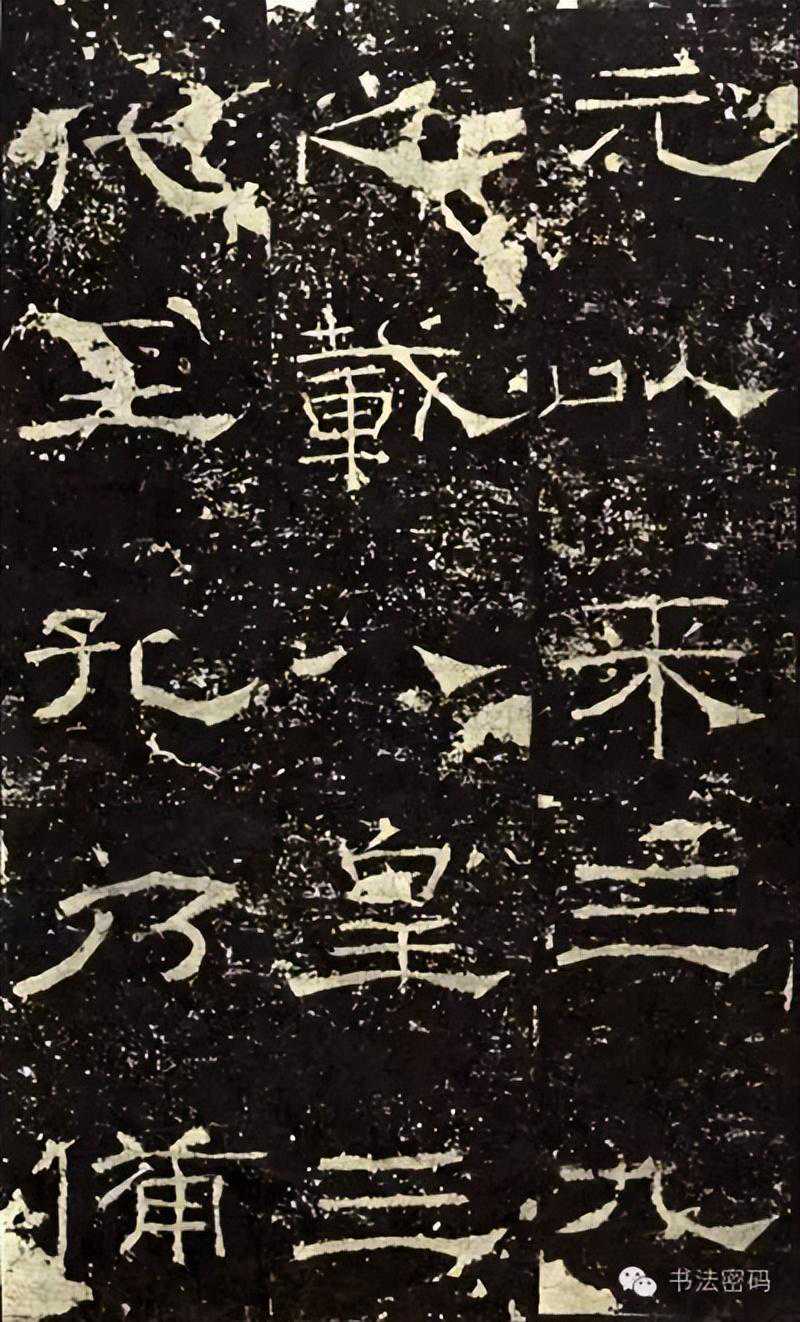 元以来三九
之載八皇三
代至孔乃備
书法密码